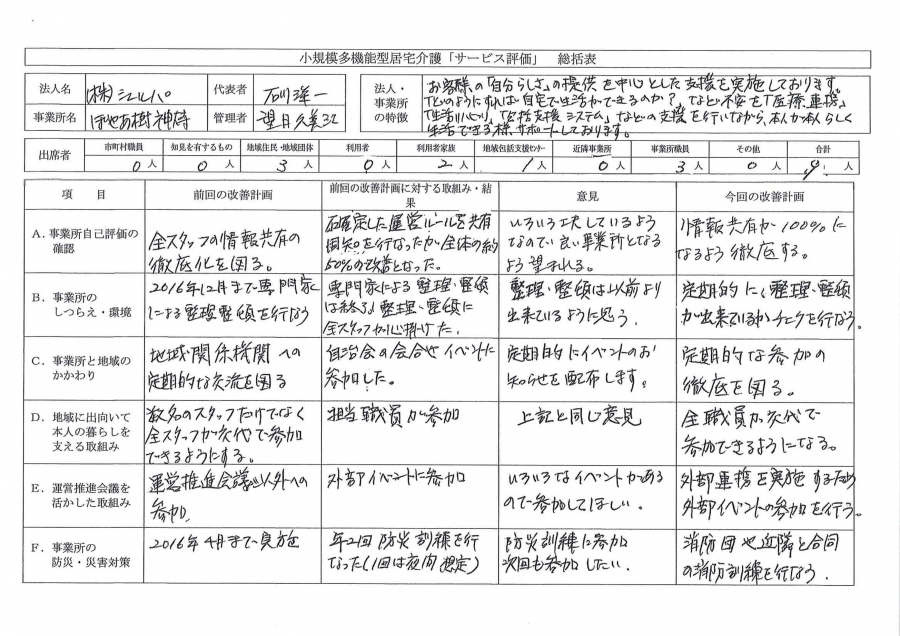 小規模多機能型居宅介護「サービス評価」 総括表
法人名 (株)シェルパ 代表者 石川洋一 法人・事業所の特徴
事業所名 ほやあ樹神侍 管理者 望月久美江
お客様の「自分らしさ」の提供を中心とした支援を実施しております。
「どのようにすれば自宅で生活ができるのか?」など不安を「医療連携」
などの支援を行いながら、本人が本人らしく
生活できる様、サポートしております。
出席者 市町村職員 知見を有するもの 地域住民・地域団体 利用者 利用者家族 地域包括支援センター 近隣事業所 事業所職員 その他 合計
0人 0人 3人 0人 2人 1人 0人 3人 0人 9人
項目 前回の改善計画 前回の改善計画に対する取組み・結果 意見 今回の改善計画
A.事業所自己評価の
確認
全スタッフの情報共有の
徹底化を図る。
確定した運営ルールを共有
周知を行なったが全体の約
50%の改善となった。
いろいろ工夫しているよう
なので良い事業所となる
よう望まれる。
情報共有が100%に
なるよう徹底する。
B.事業所の
しつらえ・環境
2016年12月まで専門家
による整理整頓を行なう
専門家による整理・整頓
は終了し整理・整頓に
全スタッフが心掛けた.
整理・整頓は以前より
出来ているように思う.
定期的に、整理・整頓
が出来ているかチェックを行なう。
C.事業所と地域の
かかわり
地域・関係機関への
定期的な交流を図る
自治会の会合やイベントに
参加した。
定期的にイベントのお
知らせを配布します。
定期的な参加の
徹底を図る。
D.地域に出向いて
本人の暮らしを
支える取組み
数名のスタッフだけでなく
全スタッフが交代で参加
できるようにする。
担当職員が参加
上記と同じ意見
全職員が交代で
参加できるようになる。
E.運営推進会議を
活かした取組み
運営推進会議以外への
参加.
外部イベントに参加
いろいろなイベントがある
ので参加してほしい.
外部連携を実施するため
外部イベントの参加を行う。
F.事業所の
防災・災害対策
2016年4月まで実施
年2回防災訓練を行
なった(1回は夜間想定)
防災訓練に参加
次回も参加したい.
消防団や近隣と合同
の消防訓練を行なう.